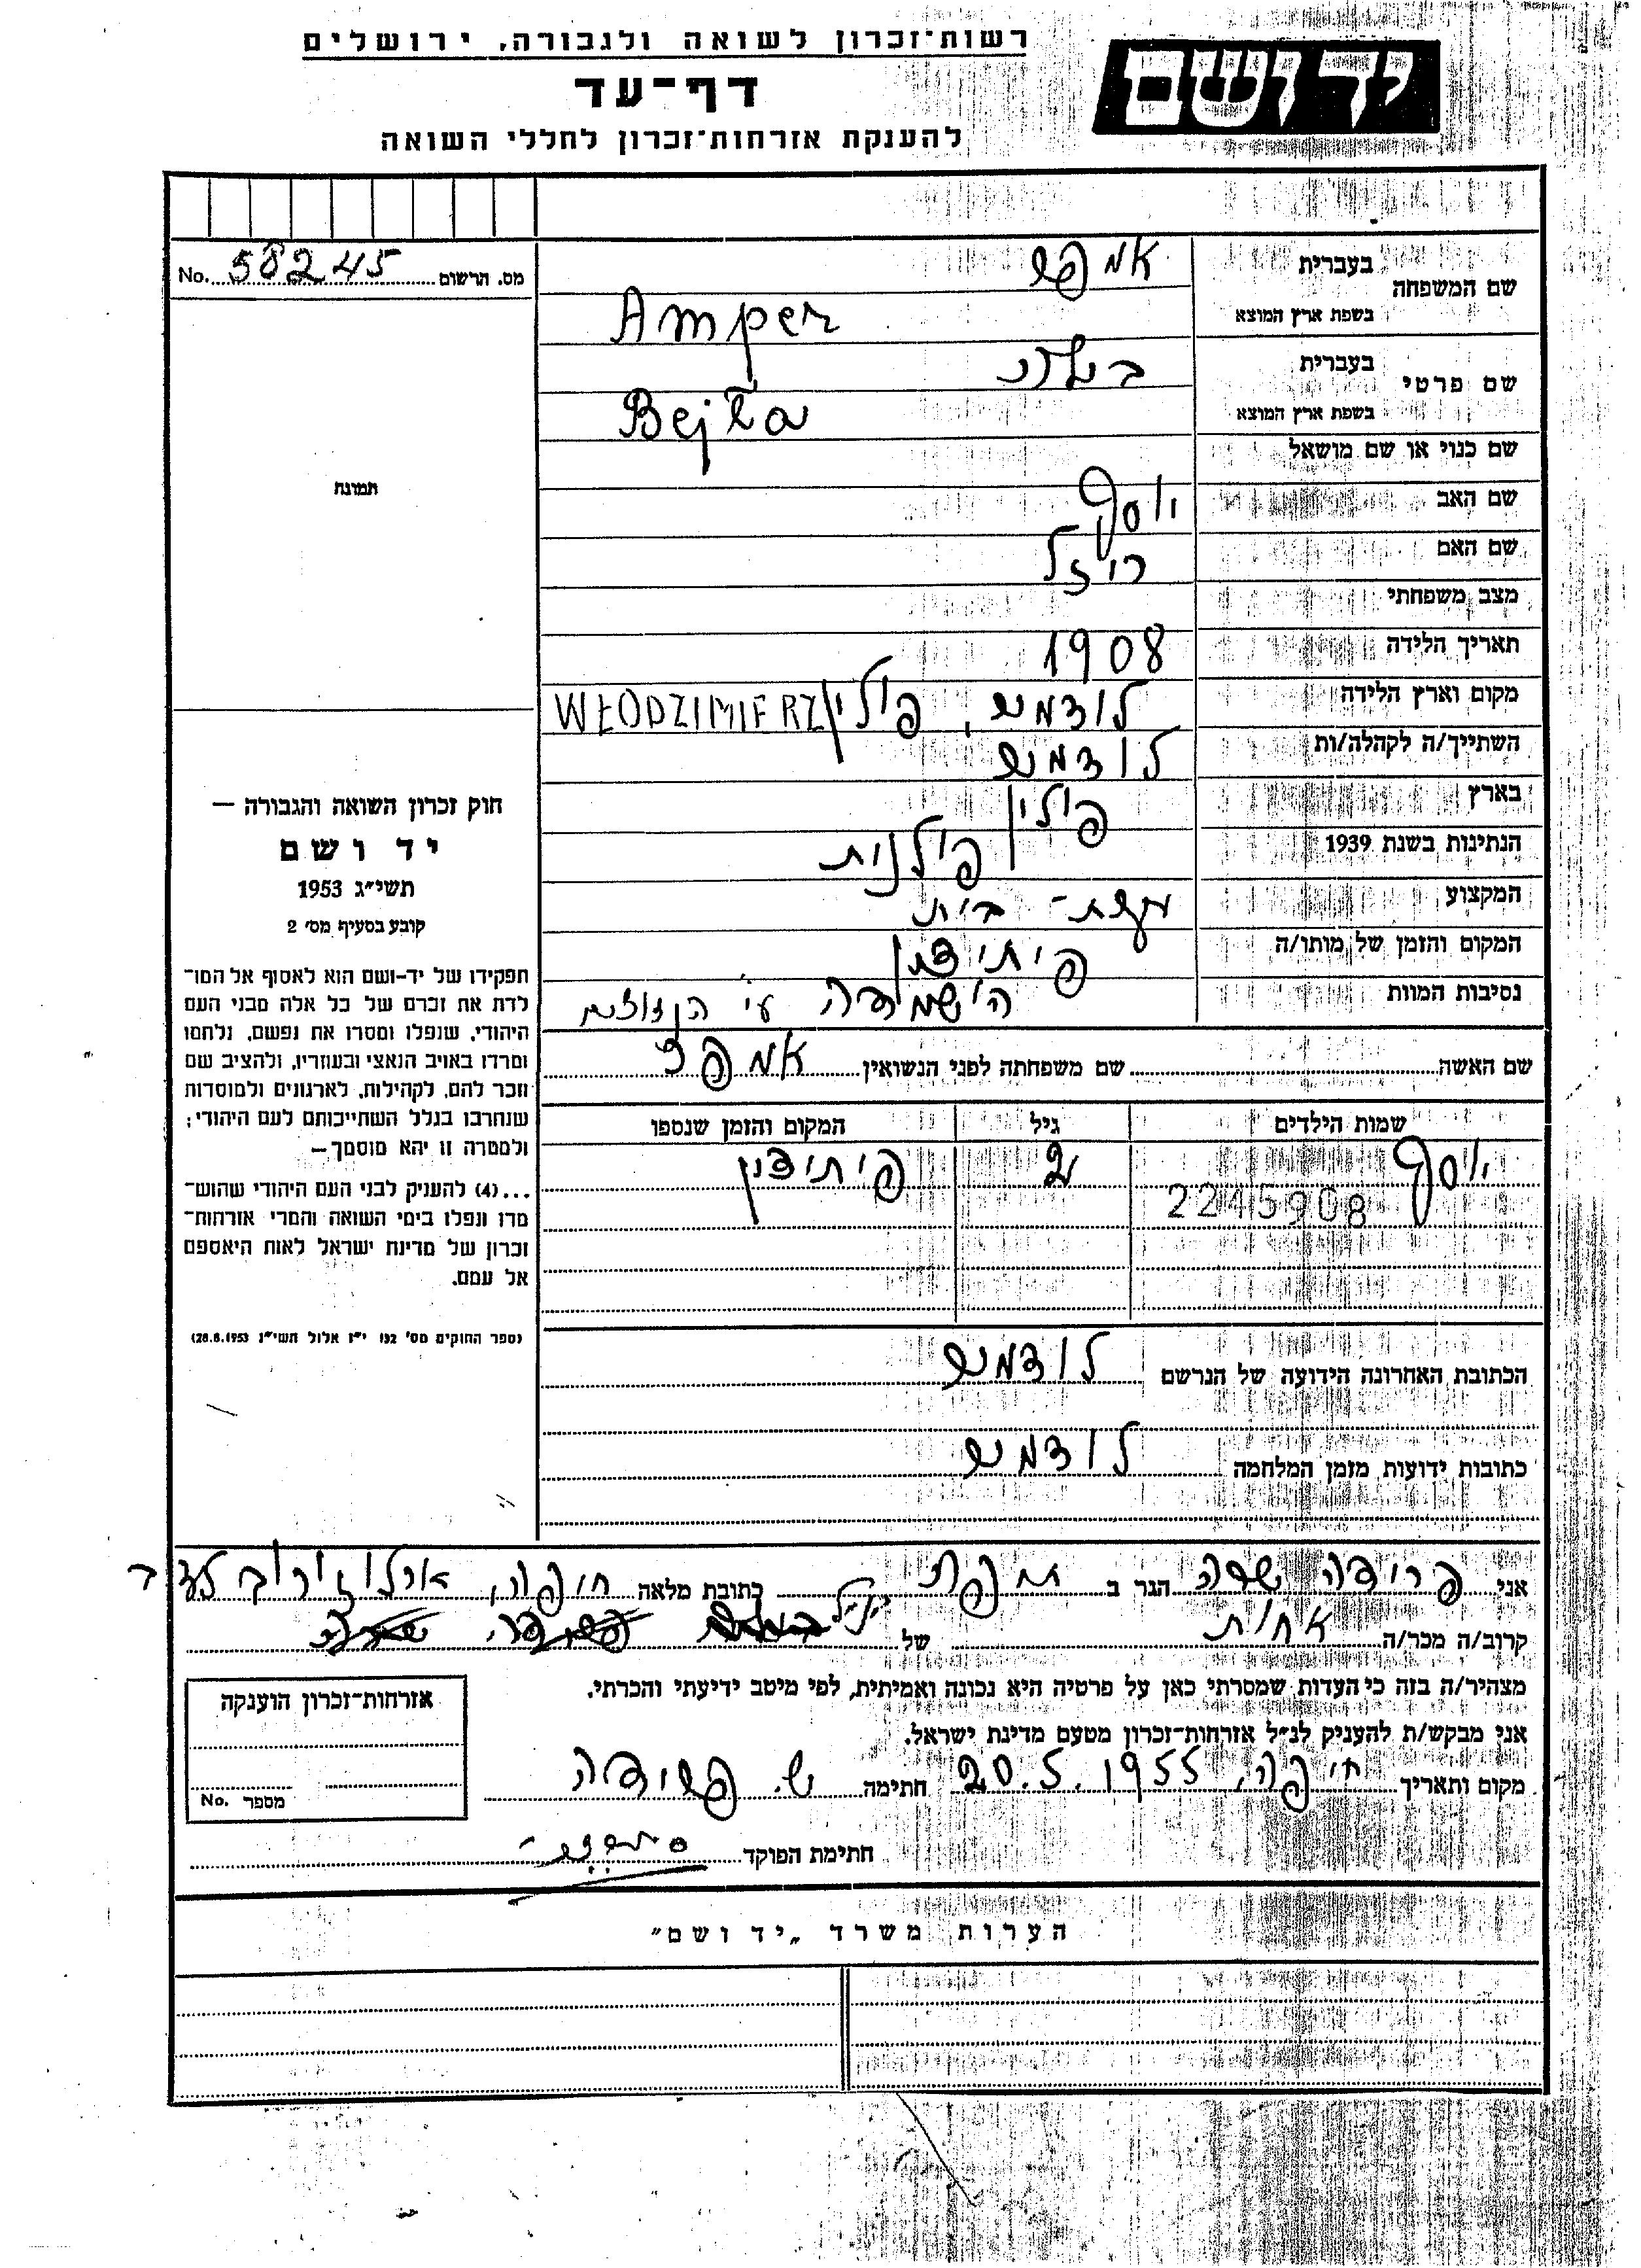 רשות־זכרון לשואה ולגבורה, ירושלים
דף־עד
להענקת אזרחות־זכרון לחללי השואה
יד ושם
מס. הרשום 58245 No.
שם המשפחה
בעברית
אמפר
בשפת ארץ המוצא
Amper
שם פרטי
בעברית
בשפת ארץ המוצא
Bejła
שם כנוי או שם מושאל
שם האב יוסף
שם האם ריזל
מצב משפחתי
תאריך הלידה 1908
מקום וארץ הלידה לודמיר, פולין WŁODZIMIERZ
השתייך/ה לקהלה/ות לודמיר
בארץ פולין
הנתינות בשנת 1939 פולנית
המקצוע עקרת־בית
המקום והזמן של מותו/ה פיתידן
נסיבות המוות הושמדה ע״י הנאצים
תמונה
חוק זכרון השואה והגבורה —
יד ושם
תשי״ג 1953
קובע בסעיף מס׳ 2
תפקידו של יד־ושם הוא לאסוף אל המו־
לדת את זכרם של כל אלה מבני העם
היהודי, שנפלו ומסרו את נפשם, נלחמו
ומרדו באויב הנאצי ובעוזריו, ולהציב שם
וזכר להם, לקהילות, לארגונים ולמוסדות
שנחרבו בגלל השתייכותם לעם היהודי;
ולמטרה זו יהא מוסמך—
...(4) להעניק לבני העם היהודי שהוש־
מדו ונפלו בימי השואה והמרי אזרחות־
זכרון של מדינת ישראל לאות היאספם
אל עמם.
(ספר החוקים מס׳ 132 י״ז אלול תשי״ג 28.8.1953)
שם האשה שם משפחתה לפני הנשואין אמפר
שמות הילדים גיל המקום והזמן שנספו
יוסף 2 פיתידן
2215908
הכתובת האחרונה הידועה של הנרשם לודמיר
כתובות ידועות מזמן המלחמה לודמיר
אני פרידה שרה הגר ב חיפה כתובת מלאה חיפה, ארלוזורוב
קרוב/ה מכר/ה אחות של
מצהיר/ה בזה כי העדות שמסרתי כאן על פרטיה היא נכונה ואמיתית, לפי מיטב ידיעתי והכרתי.
אני מבקש/ת להעניק לנ״ל אזרחות־זכרון מטעם מדינת ישראל.
מקום ותאריך חיפה, 20.5.1955 חתימה ש. פרידה
חתימת הפוקד
אזרחות־זכרון הוענקה
מספר No.
הערות משרד „יד ושם״